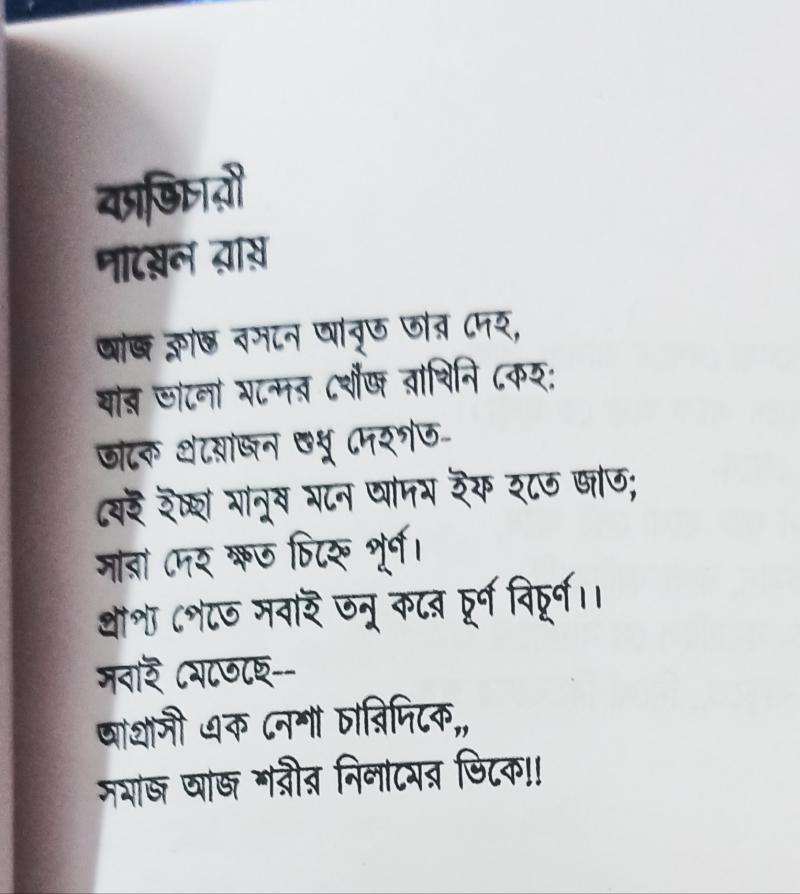 ব্যাভিচারী
পায়েল রায়
আজ ক্লান্ত বসনে আবৃত তার দেহ,
যার ভালো মন্দের খোঁজ রাখিনি কেহ:
তাকে প্রয়োজন শুধু দেহগত-
যেই ইচ্ছা মানুষ মনে আদম ইফ হতে জাত;
সারা দেহ ক্ষত চিহ্নে পূর্ণ।
প্রাপ্য পেতে সবাই তনু করে চূর্ণ বিচূর্ণ।।
সবাই মেতেছে--
আগ্রাসী এক নেশা চারিদিকে,,
সমাজ আজ শরীর নিলামের ভিকে!!